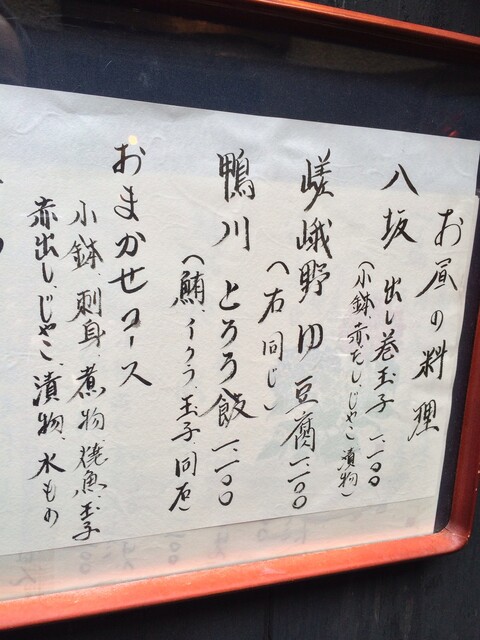 お昼の料理
八坂 出し巻玉子 一、一〇〇
(小鉢、赤だし、じゃこ、漬物)
嵯峨野 ゆ豆腐 一、一〇〇
(右同じ)
鴨川 とろろ飯 一、一〇〇
(鮪、イクラ、玉子、同右)
おまかせコース
小鉢、刺身、煮物、焼魚、玉子
赤出し、じゃこ、漬物、水もの